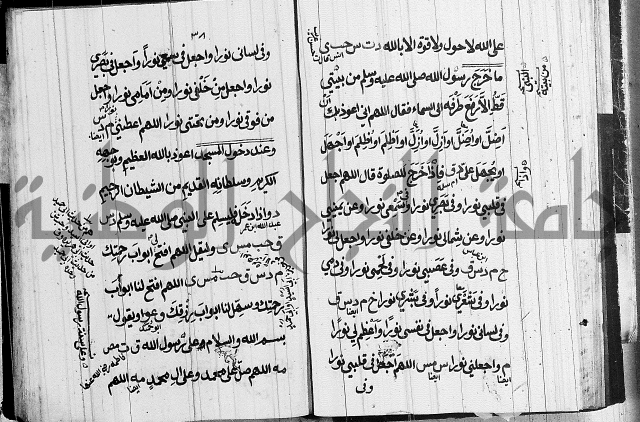 على الله لا حول ولا قوة الا بالله د ت س حب ى
ما خرج رسول الله صلى الله عليه وسلم من بيتي
قط الا رفع طرفه الى السماء فقال اللهم اني اعوذ بك ان
اضل او اضل او ازل او ازل او اظلم او اظلم او اجهل
او يجهل علي د ق فاذا خرج للصلوة قال اللهم اجعل
في قلبي نورا وفي بصري نورا وفي سمعي نورا وعن يميني
نورا وعن شمالي نورا وعن خلفي نورا واجعل لي نورا
خ م د س ق وفي عصبي نورا وفي لحمي نورا وفي دمي
نورا وفي شعري نورا وفي بشري نورا خ م د س ق
وفي لساني نورا واجعل في نفسي نورا واعظم لي نورا
م واجعلني نورا س مس اللهم اجعل في قلبي نورا
وفي
٣٨
وفي لساني نورا واجعل في سمعي نورا واجعل في بصري
نورا واجعل من خلفي نورا ومن امامي نورا واجعل
من فوقي نورا ومن تحتي نورا اللهم اعطني نورا م د
وعند دخول المسجد اعوذ بالله العظيم وبوجهه
الكريم وسلطانه القديم من الشيطان الرجيم
د واذا دخل فليسلم على النبي صلى الله عليه وسلم د س
ق حب مس ى وليقل اللهم افتح لي ابواب رحمتك
م د س ق حب مس ى اللهم افتح لنا ابواب
رحمتك وسهل لنا ابواب رزقك عو او يقول
بسم الله والسلام على رسول الله ق ت مص
مه اللهم صل على محمد وعلى ال محمد مه اللهم
جامعة النجاح الوطنية